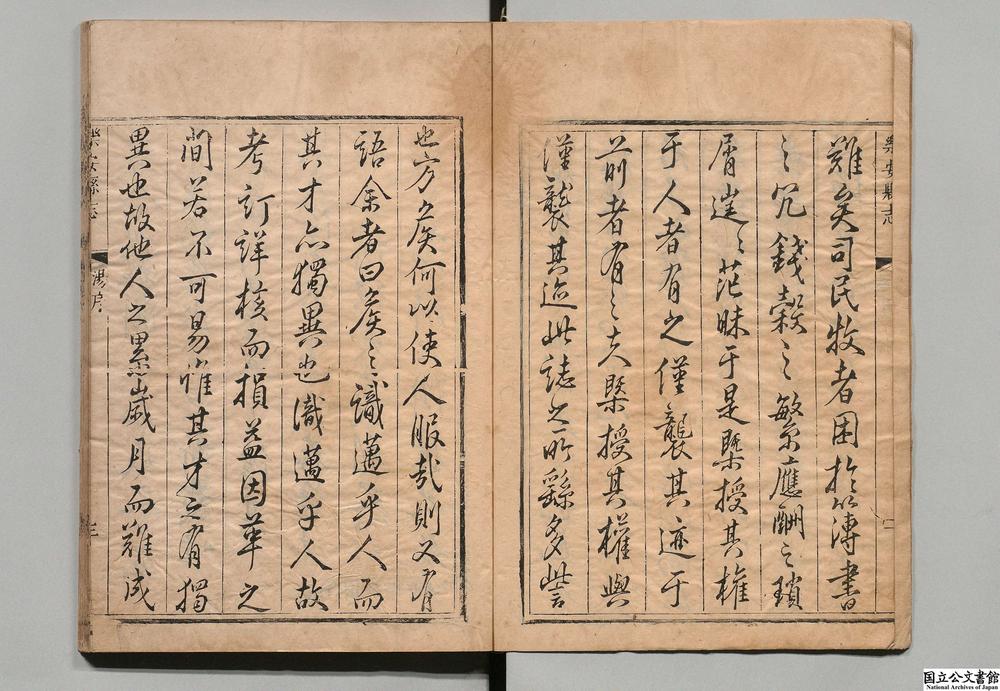 難矣司民牧者困於簿書
之冗錢穀之繁應酬之瑣
屑迷〻茫昧于是槩授其權
于人者有之僅襲其迹于
前者有之夫槩授其權與
僅襲其迹此誌之所繇多訾
也方侯何以使人服哉則又有
語余者曰侯之識邁乎人而
其才亦獨異也識邁乎人故
考訂詳核而損益因革之
間若不可易惟其才之有獨
異也故他人之累歲月而難成
樂安縣志
二
樂安縣志
序
三
国立公文書館
National Archives of Japan